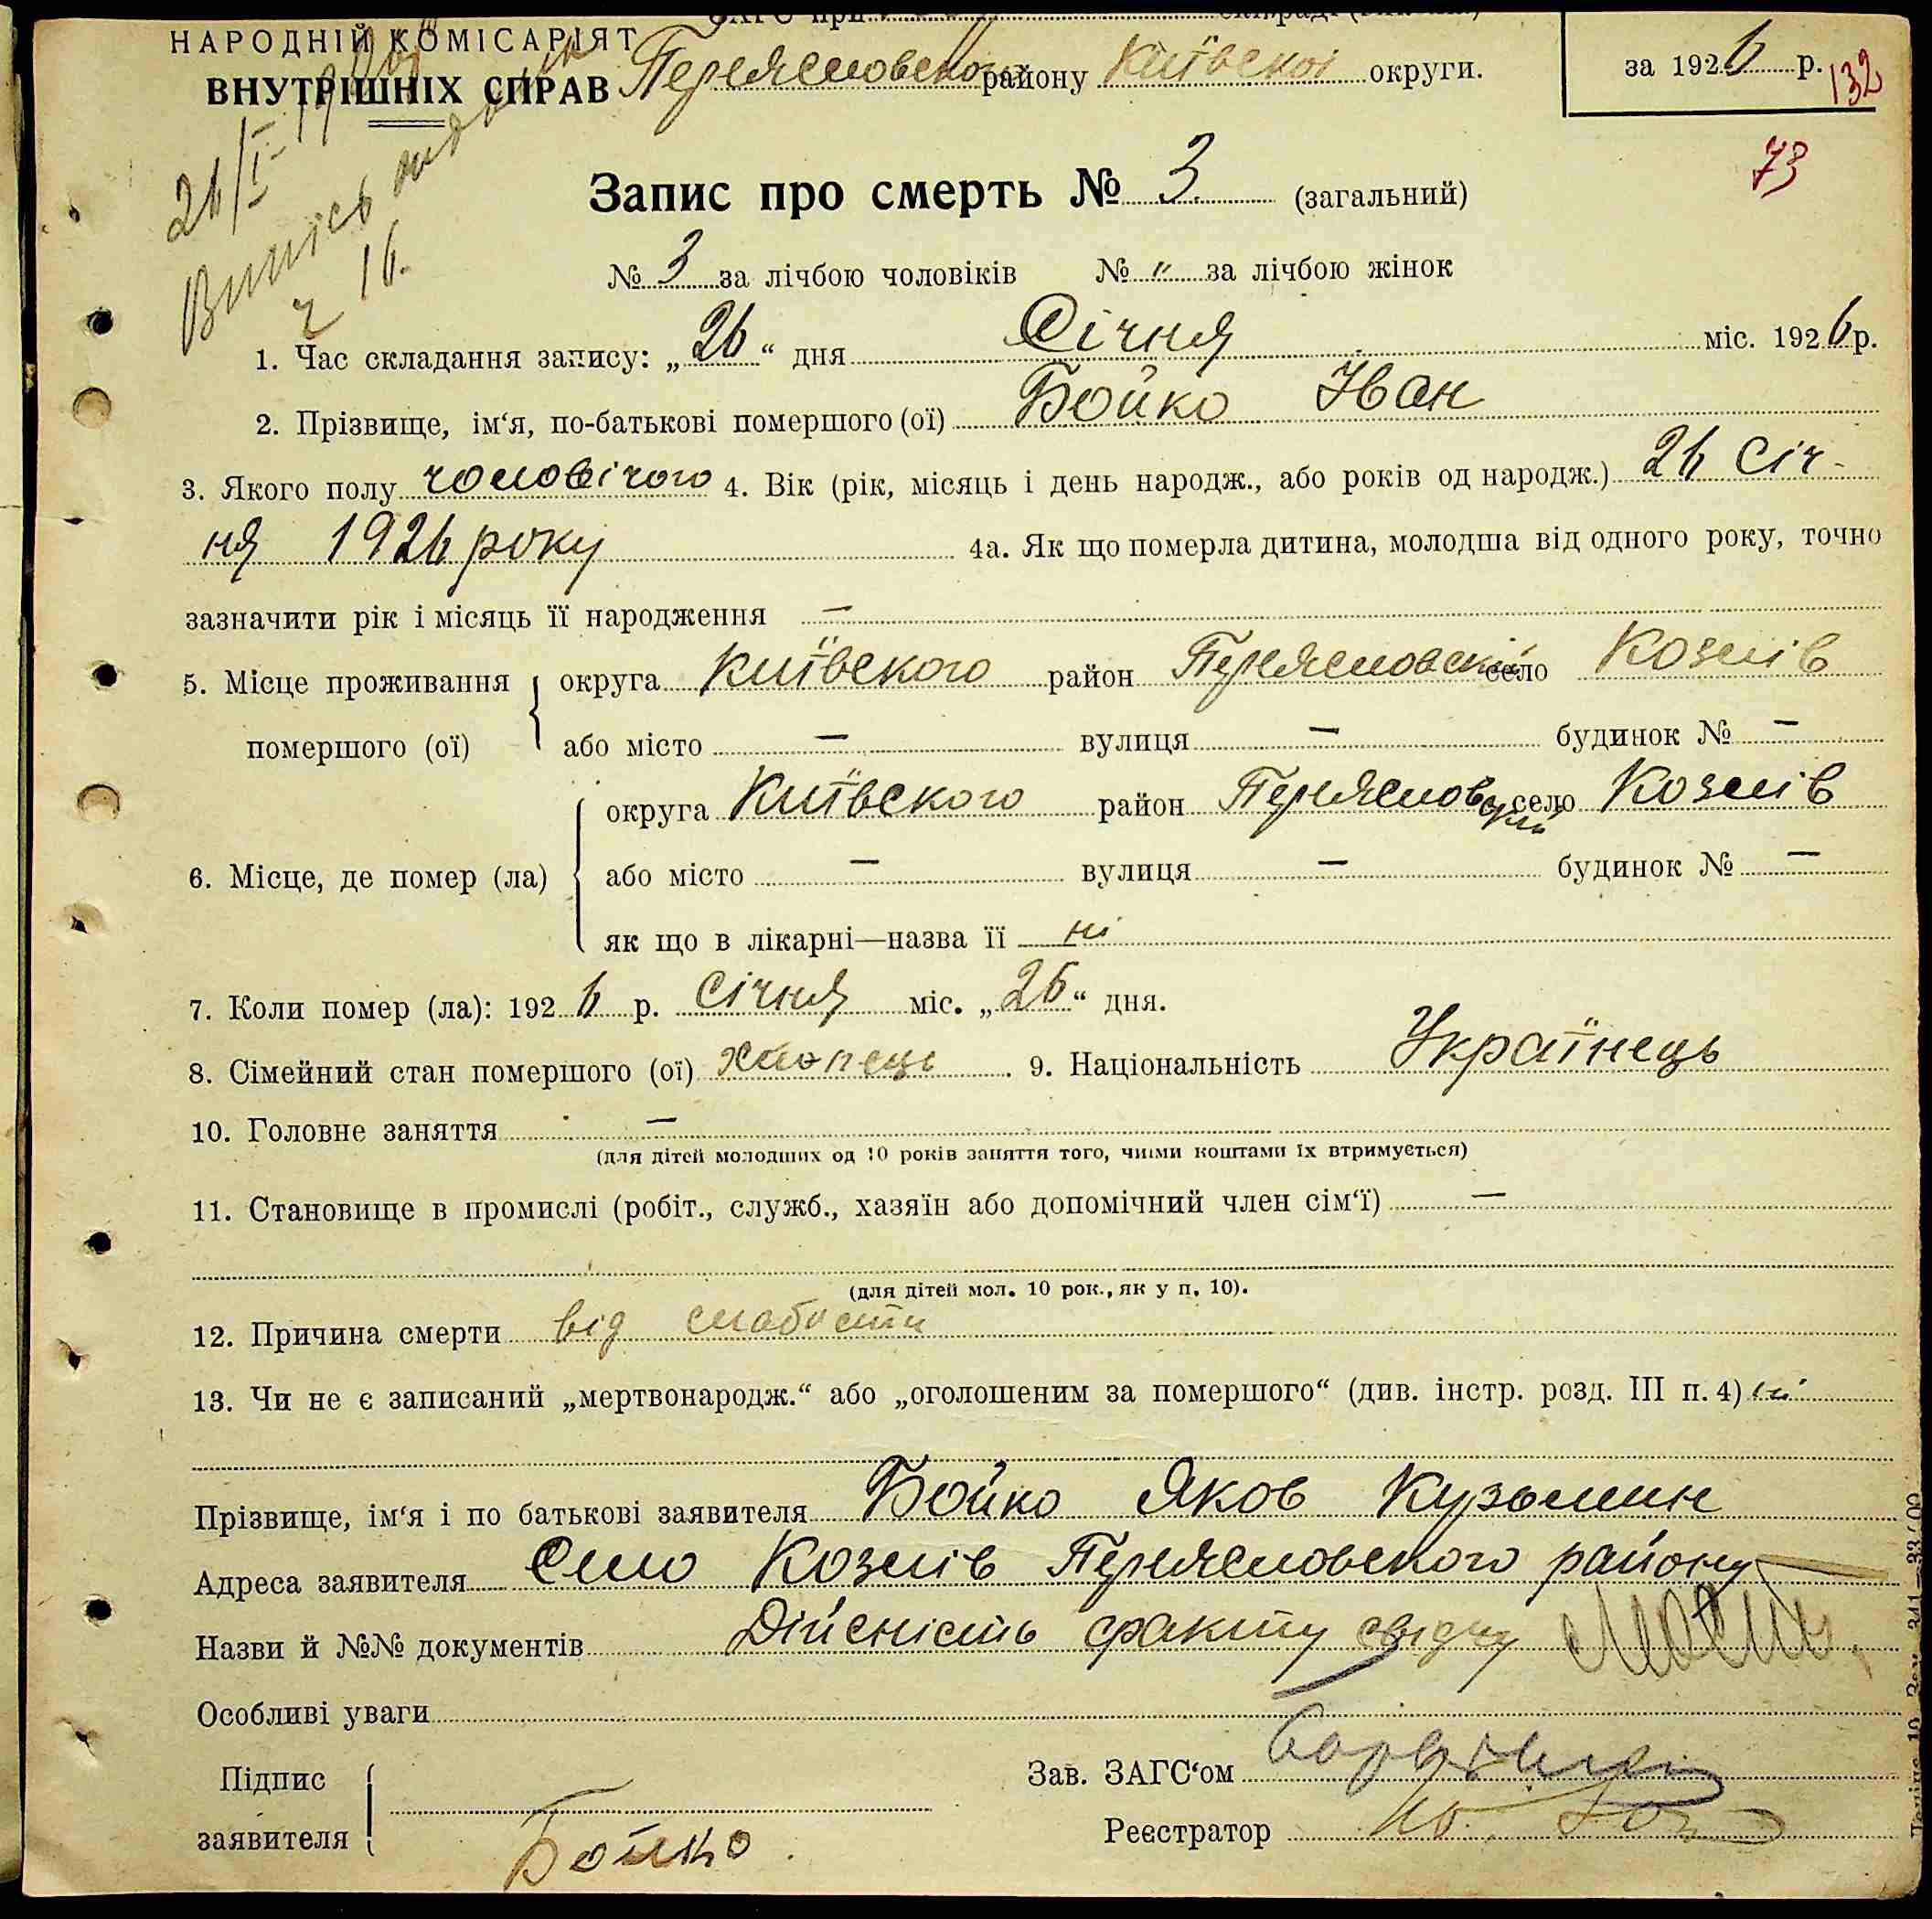 НАРОДНІЙ КОМІСАРІЯТ
ВНУТРІШНІХ СПРАВ
Переясловського району Київскої округи.
за 1926 р.
132
73
26/I
Випись
16.
Запис про смерть № 3. (загальний)
№ 3 за лічбою чоловіків № „ за лічбою жінок
1. Час складання запису: „26“ дня Січня міс. 1926 р.
2. Прізвище, ім‘я, по-батькові помершого (ої) Бойко Іван
3. Якого полу чоловічого 4. Вік (рік, місяць і день народж., або років од народж.) 26 Січ-
ня 1926 року 4а. Як що померла дитина, молодша від одного року, точно
зазначити рік і місяць її народження —
5. Місце проживання помершого (ої) округа Київского район Переясловский село Козлів
або місто — вулиця — будинок № —
6. Місце, де помер (ла) округа Київского район Переясловский село Козлів
або місто — вулиця — будинок № —
як що в лікарні—назва її ні
7. Коли помер (ла): 1926 р. Січня міс. „26“ дня.
8. Сімейний стан помершого (ої) хлопець . 9. Національність Українець
10. Головне заняття —
(для дітей молодших од 10 років заняття того, чиїми коштами їх втримується)
11. Становище в промислі (робіт., служб., хазяїн або допомічний член сім‘ї) —
(для дітей мол. 10 рок., як у п. 10).
12. Причина смерти від слабости
13. Чи не є записаний „мертвонародж.“ або „оголошеним за помершого“ (див. інстр. розд. III п. 4) ні
Прізвище, ім‘я і по батькові заявителя Бойко Яков Кузьмин
Адреса заявителя Село Козлів Переясловского району
Назви й №№ документів Дійсність факту свідчу
Особливі уваги
Підпис заявителя Бойко.
Зав. ЗАГС‘ом
Реєстратор